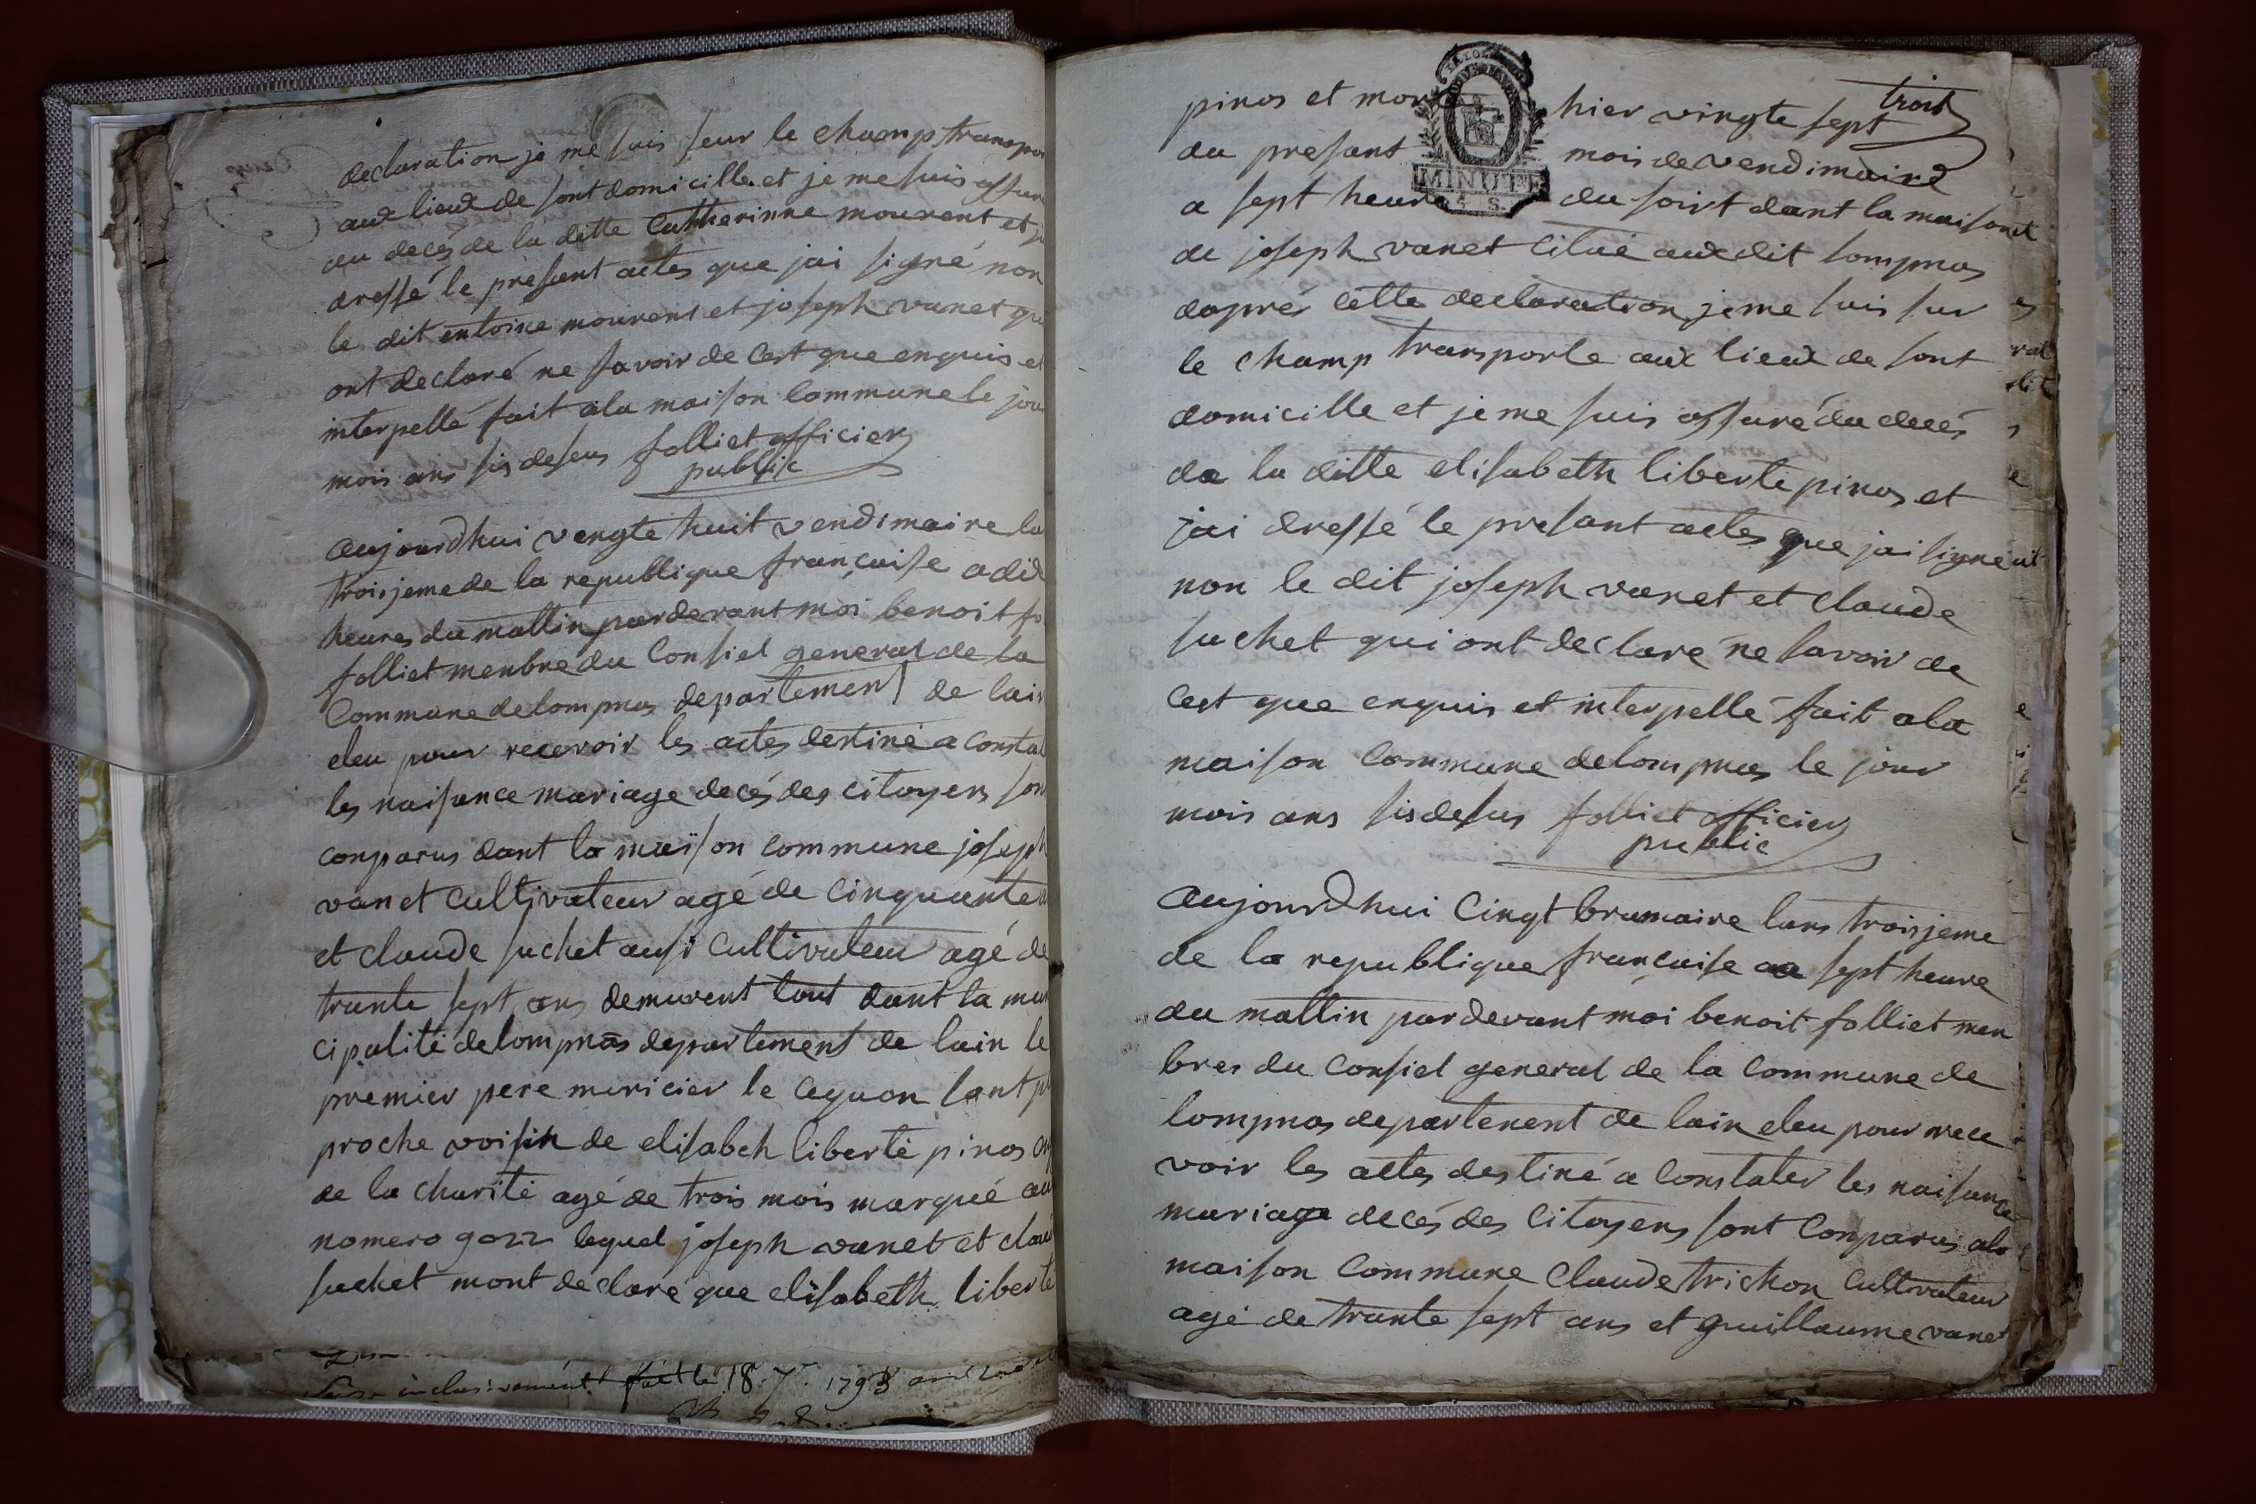 declaration je me suis seur le champ transpor
aux lieux de sont domicille et je me suis assur
du decés de la ditte Catherinne mourent et j
dressé le presant actes que jai signé non
le dit entoine mourent et joseph vanet qu
ont declaré ne savoir de cest que enquis et
interpellé fait ala maison commune le jou
mois ans sis desus folliet officier
public
aujourdhui vengte huit vendimaire la
troisjeme de la republique francaise a dix
heures du mattin pardevant moi benoit fo
folliet menbre du Consiel general de la
Commune de lompnas departement de lain
eleu pour recevoir les actes destiné a constat
les naisance mariage decés des citoyens son
conparus dant la maison commune joseph
vanet cultivateur agé de cinquante
et claude suchet ausi cultivateur agé de
trante sept ans demurent tout dant la mu
cipalité de lompnas departement de lain le
premier pere muricier le ceguon sant pl
proche voisin de elisabeh liberté pinos
de la charité agé de trois mois marqué au
nomero 9022 lequel joseph vanet et claud
suchet mont declaré que elisabeth liberté
inclusivement fait le 18 7 1793
trois
pinos et mor hier vingte sept
du presant mois de vendimaire
a sept heure du soirt dant la maisont
de joseph vanet citué aux dit lompnas
daprés cette declaration je me suis sur
le champ transporte aux lieux de sont
domicille et je me suis assuré du decés
de la ditte elisabeth liberte pinos et
jai dressé le presant actes que jai signé et
non le dit joseph vanet et claude
suchet qui ont declaré ne savoir de
cest que enquis et interpellé fait ala
maison commune de lompnas le jour
mois ans sis desus folliet officier
public
MINUTE
4 S.
aujourdhui cinqt brumaire lans troisjeme
de la republique francaise a sept heure
du mattin pardevant moi benoit folliet men
bres du consiel general de la commune de
lompnas departenent de lain eleu pour rece
voir les actes destiné a constater les naisance
mariage decés des citoyens sont conparus ala
maison commune claude trichon cultivateur
agé de trante sept ans et guillaume vanet